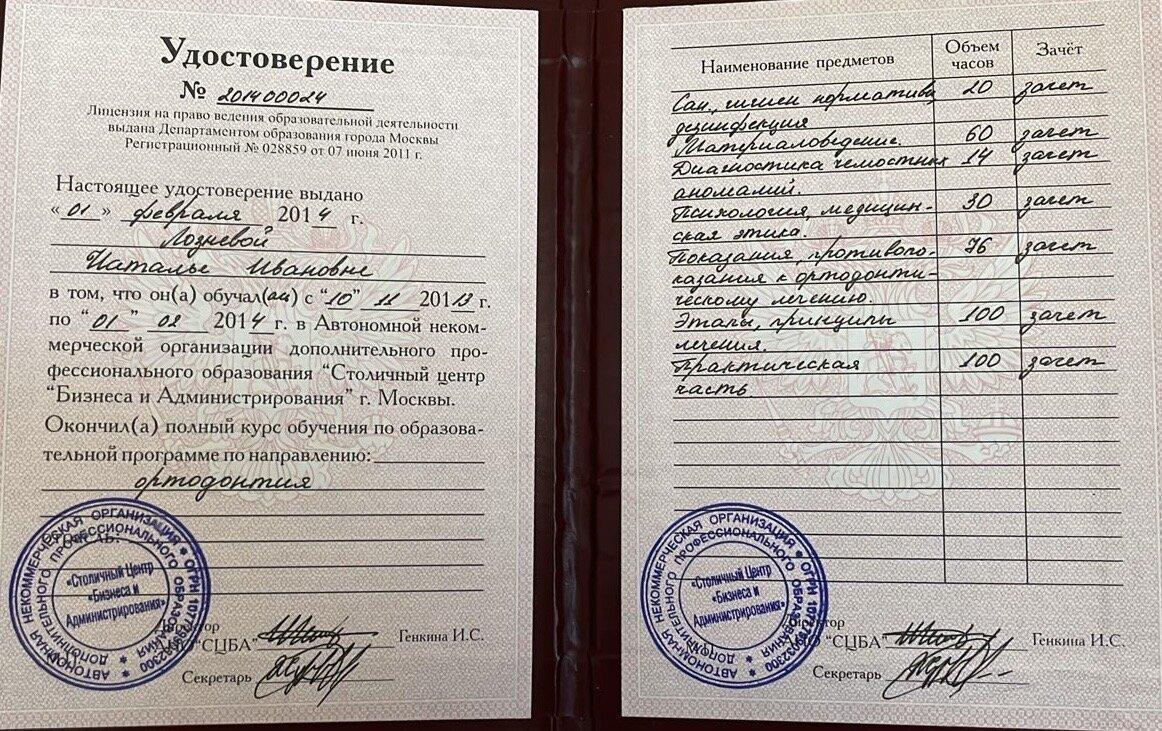 Удостоверение
№ 201400024
Лицензия на право ведения образовательной деятельности
выдана Департаментом образования города Москвы
Регистрационный № 028859 от 07 июня 2011 г.
Настоящее удостоверение выдано
«01» февраля 2014 г.
Лозневой
Наталье Ивановне
в том, что он(а) обучал(ась) с "10" 11 2013 г.
по "01" 02 2014 г. в Автономной неком-
мерческой организации дополнительного про-
фессионального образования "Столичный центр
"Бизнеса и Администрирования" г. Москвы.
Окончил(а) полный курс обучения по образова-
тельной программе по направлению:
ортодонтия
АВТОНОМНАЯ НЕКОММЕРЧЕСКАЯ ОРГАНИЗАЦИЯ
ДОПОЛНИТЕЛЬНОГО ПРОФЕССИОНАЛЬНОГО ОБРАЗОВАНИЯ
«Столичный Центр
«Бизнеса и
Администрирования»
Директор
"СЦБА" Генкина И.С.
Секретарь
Наименование предметов Объем часов Зачёт
Сан., гигиен норматива 20 зачет
дезинфекция
Материаловедение. 60 зачет
Диагностика челюстных 14 зачет
аномалий.
Психология, медицин- 30 зачет
ская этика.
Показания, противопо- 76 зачет
казания к ортодонти-
ческому лечению.
Этапы, принципы 100 зачет
лечения.
Практическая 100 зачет
часть
АВТОНОМНАЯ НЕКОММЕРЧЕСКАЯ ОРГАНИЗАЦИЯ
ДОПОЛНИТЕЛЬНОГО ПРОФЕССИОНАЛЬНОГО ОБРАЗОВАНИЯ
«Столичный Центр
«Бизнеса и
Администрирования»
Директор
"СЦБА" Генкина И.С.
Секретарь